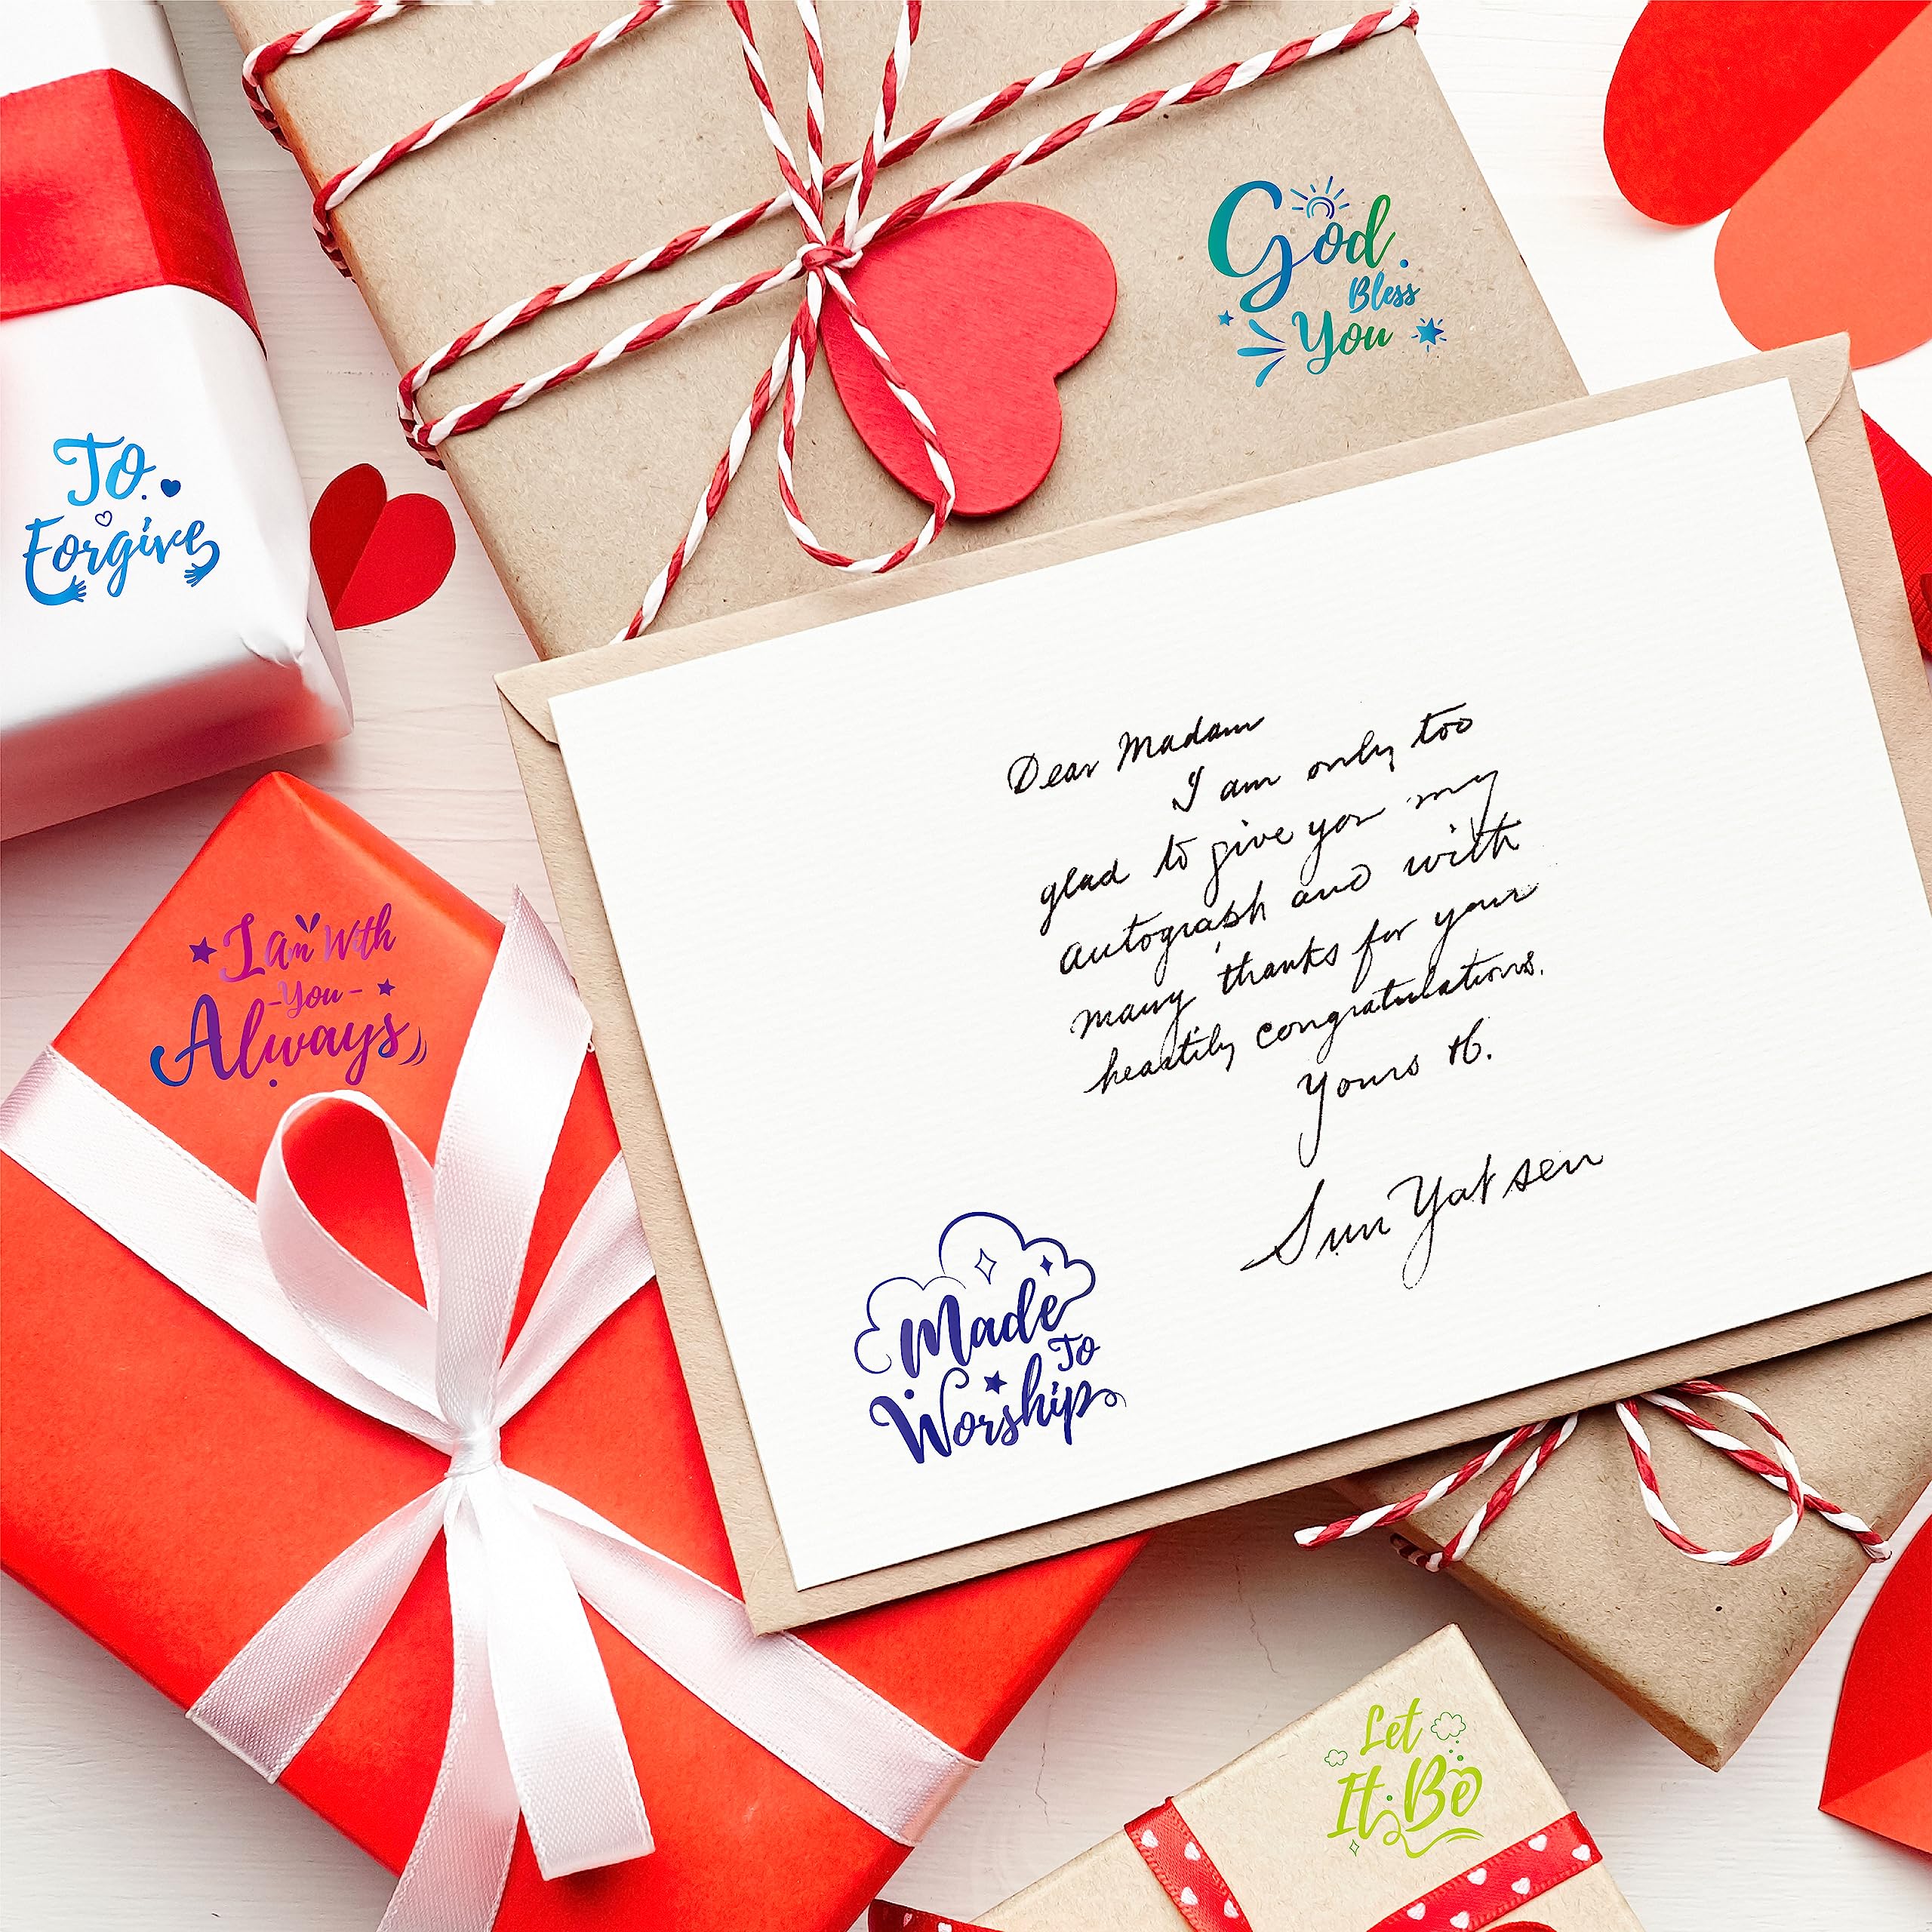 God
Bless
You
To
Forgive
Dear Madam
I am only too
glad to give you my
autograph and with
many thanks for your
heartily congratulations.
Yours
Sun Yat sen
I am With
-You-
Always
Made
To
Worship
Let
It Be